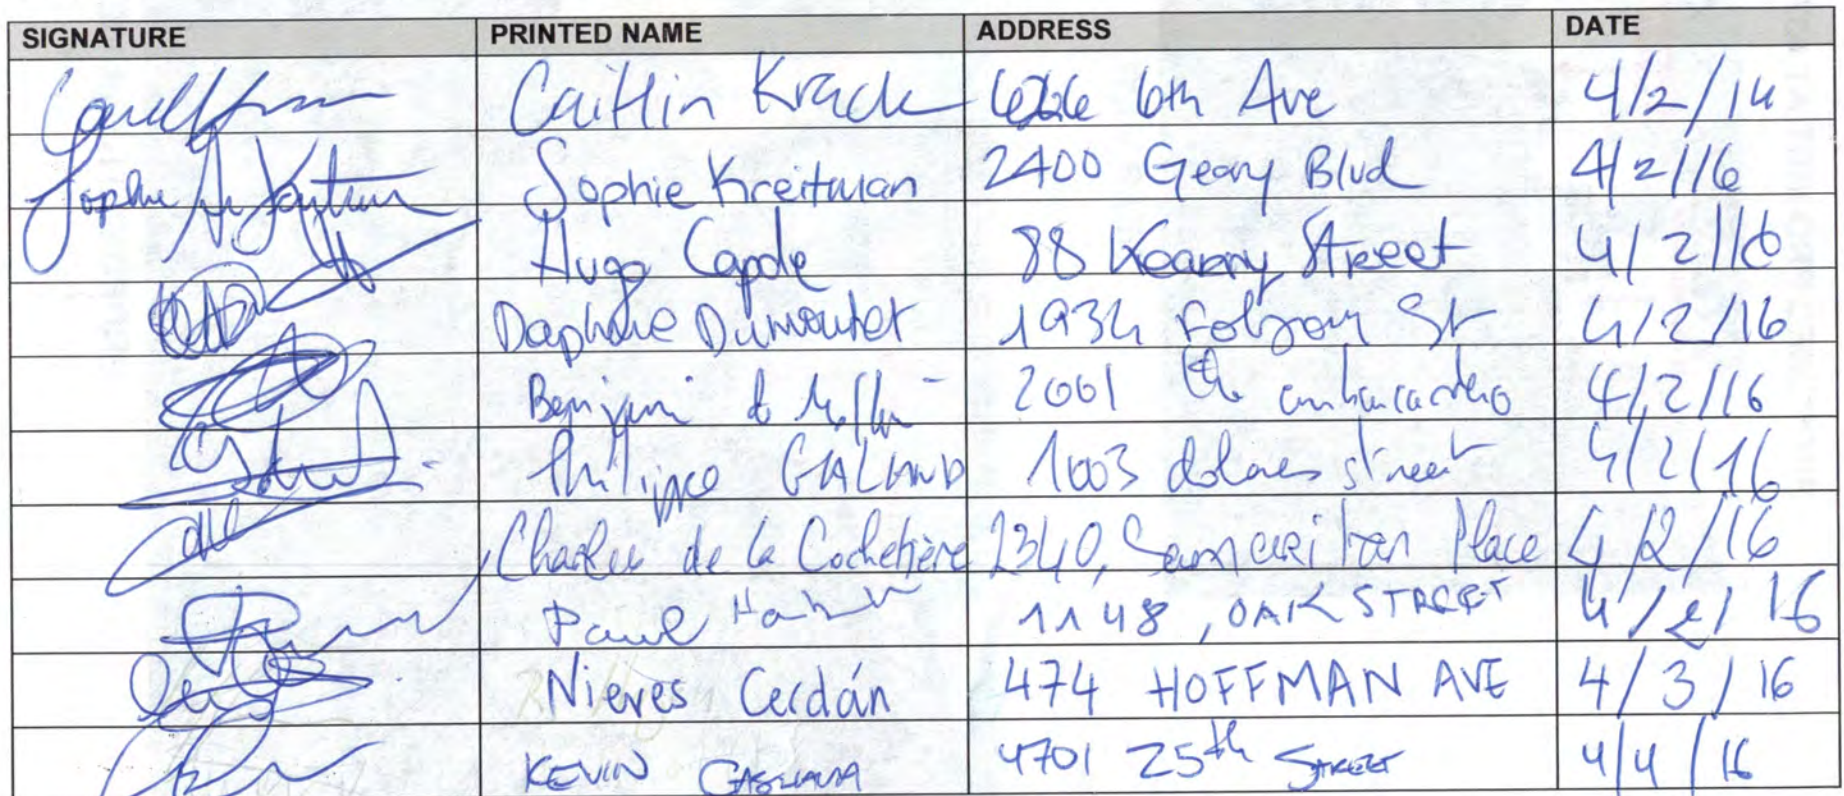 SIGNATURE PRINTED NAME ADDRESS DATE
Caitlin Krack 6th Ave 4/2/16
Sophie Kreitman 2400 Geary Blvd 4/2/16
Hugo Capole 88 Kearny Street 4/2/16
Daphnée Dumoutet 1934 Folsom St 4/2/16
Benjamin 2001 the embarcadero 4/2/16
Philippe GALLAND 1003 dolores street 4/2/16
Charles de la Cochetière 2340, Samaritan Place 4/2/16
Paul 1148, OAK STREET 4/2/16
Nieves Cerdán 474 HOFFMAN AVE 4/3/16
KEVIN 4701 25th STREET 4/4/16